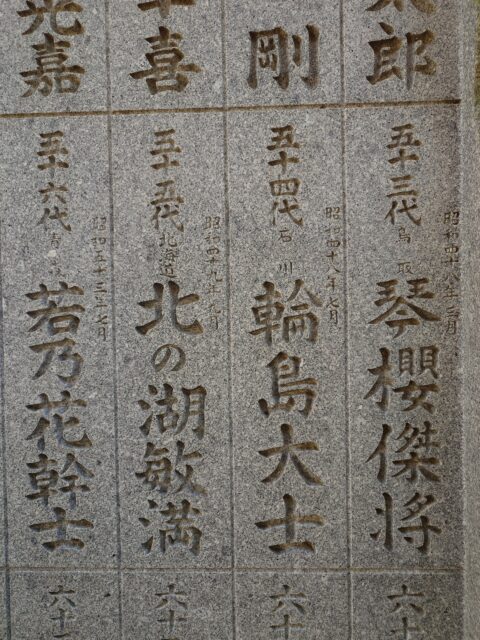 太郎
剛
幸喜
晃嘉
五十三代 鳥取
昭和四十八年三月
琴櫻傑将
五十四代 石川
昭和四十八年七月
輪島大士
五十五代 北海道
昭和四十九年九月
北の湖敏満
五十六代 青森
昭和五十三年七月
若乃花幹士
六十
六十
六十
六十